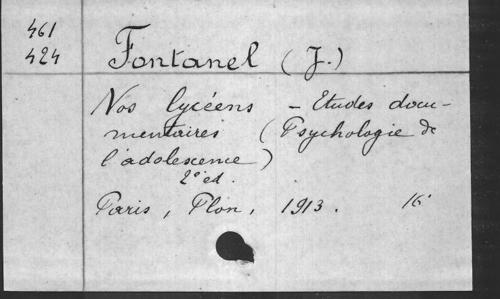 461
424
Fontanel (J.)
Nos lycéens - Etudes docu-
mentaires (Psychologie de
l'adolescence)
2e ed.
Paris, Plon, 1913. 16°